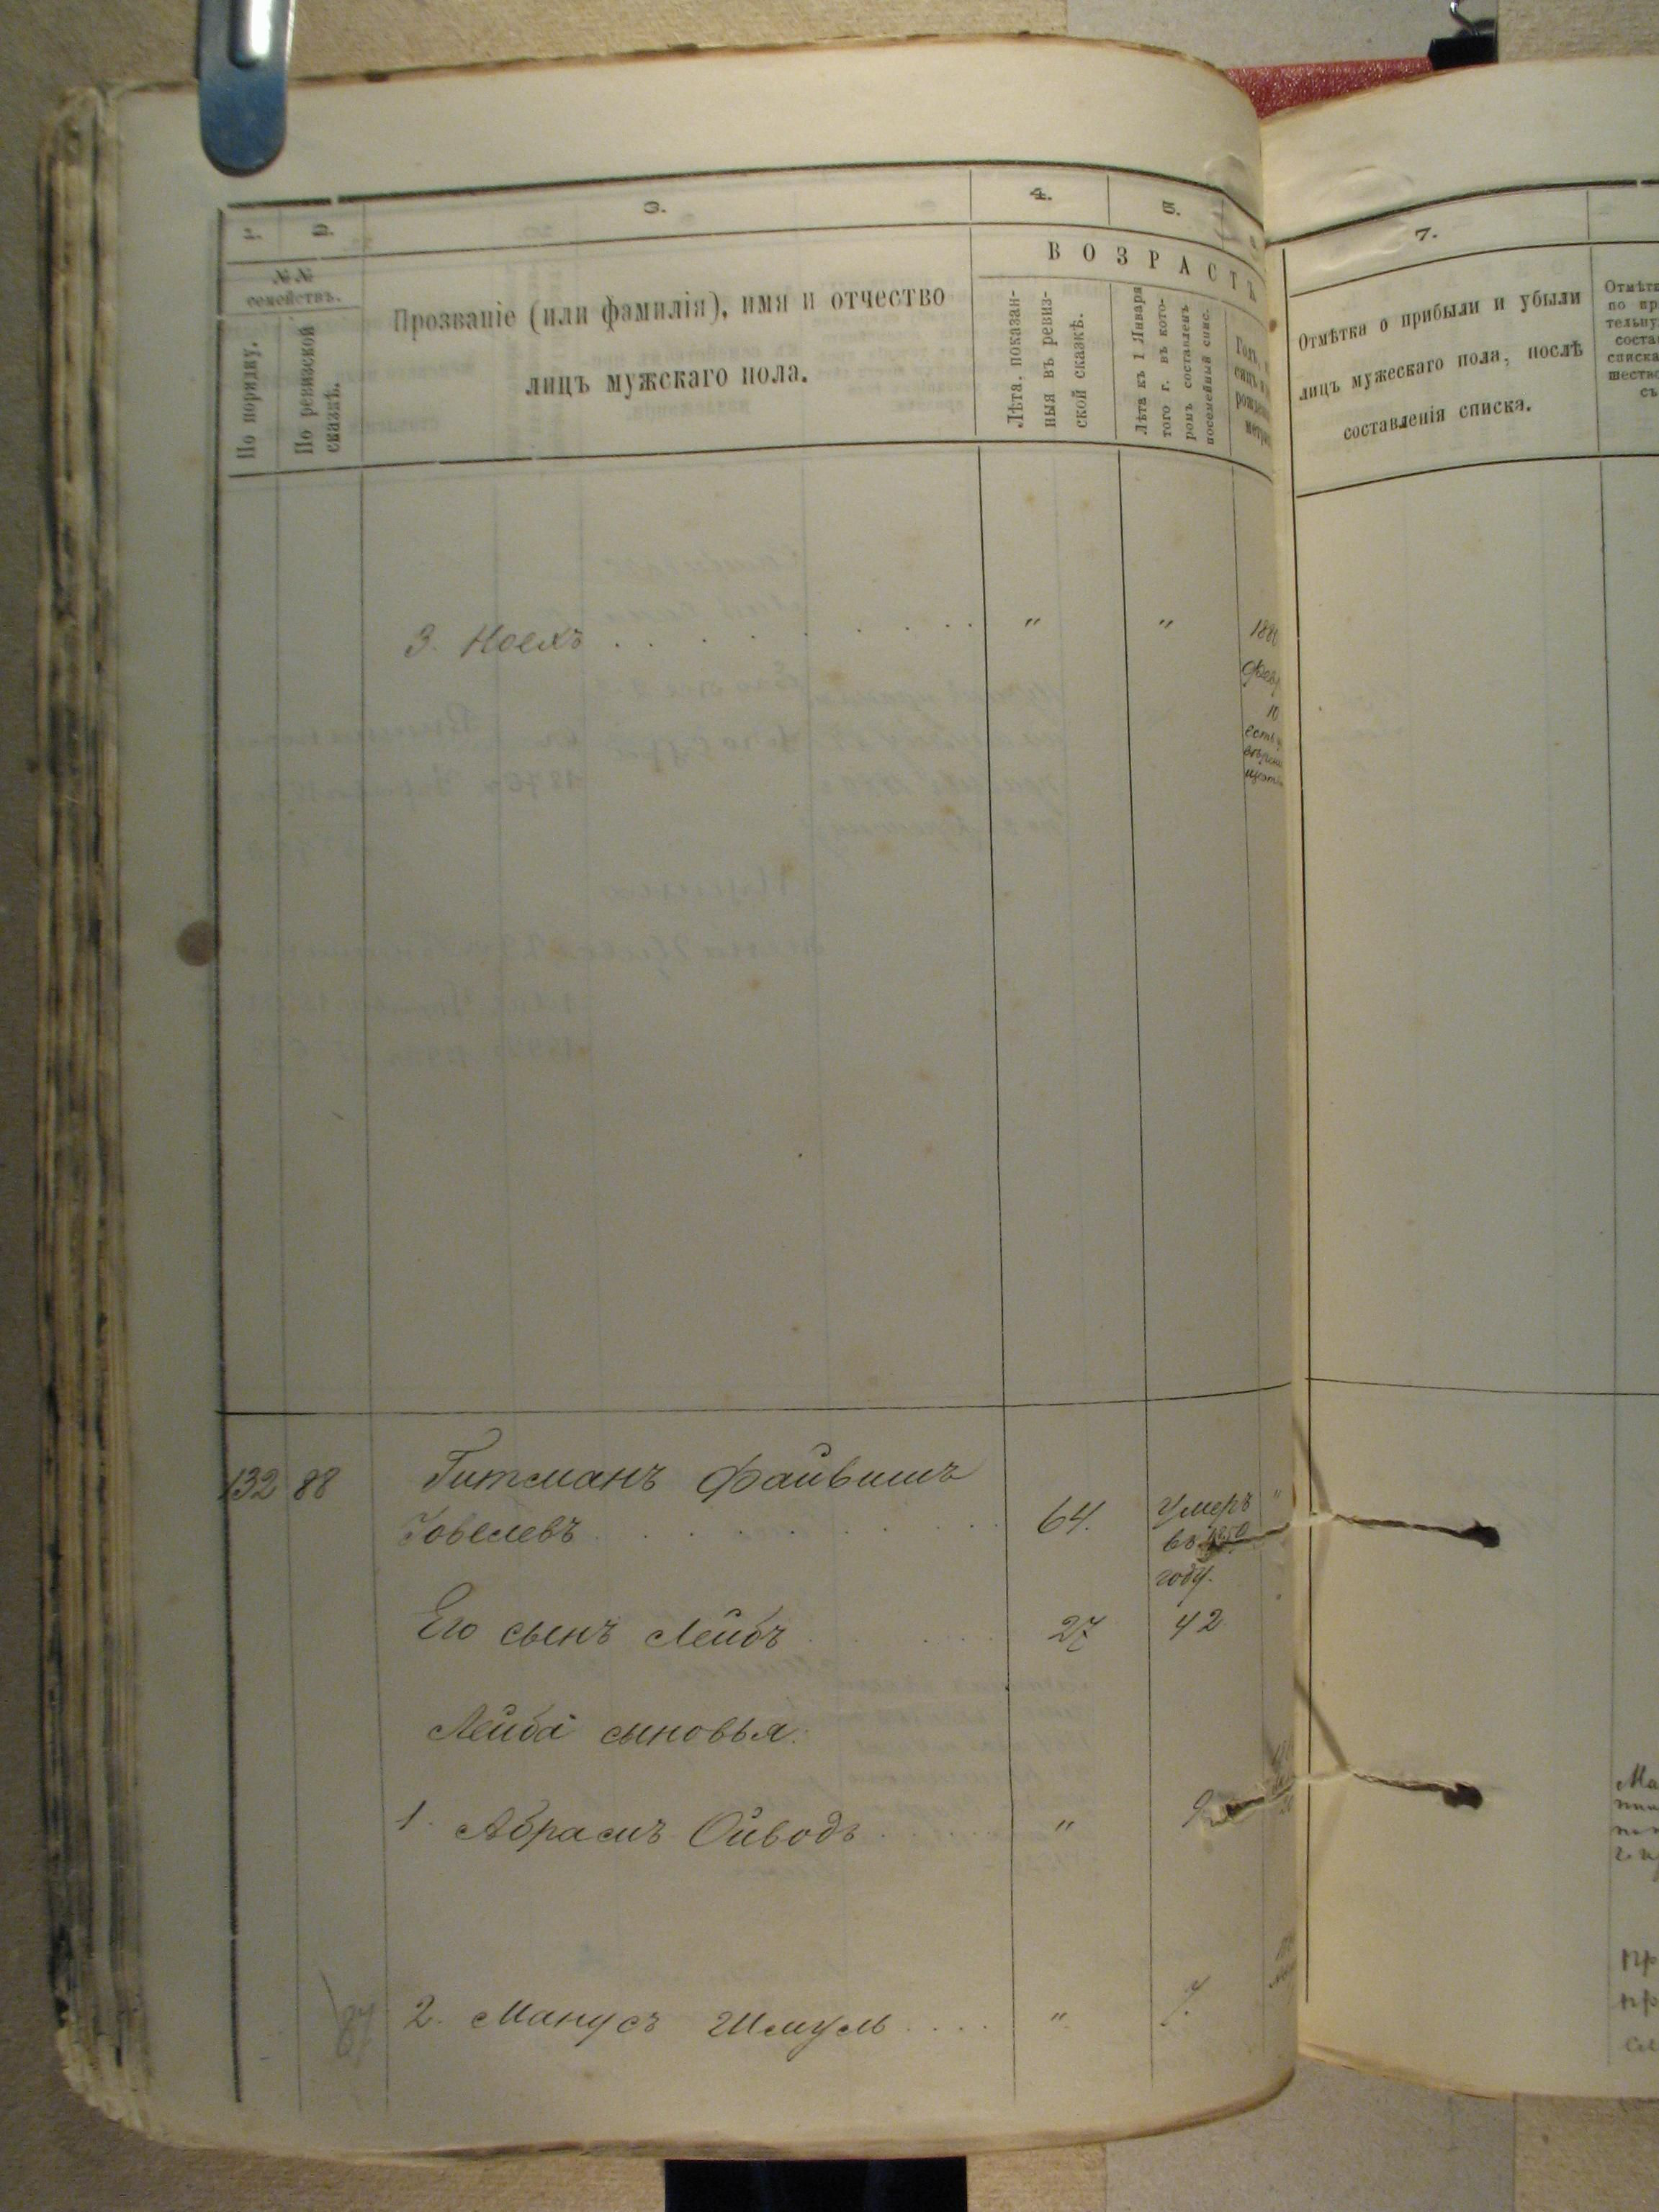 1. 2. 3. 4. 5.
№№ семействъ.
По порядку.
По ревизской сказкѣ.
Прозваніе (или фамилія), имя и отчество
лицъ мужскаго пола.
ВОЗРАСТЪ
Лѣта, показан-
ныя въ ревиз-
ской сказкѣ.
Лѣта къ 1 Января
того г. въ кото-
ромъ составленъ
посемейный спис.
7.
Отмѣтка о прибыли и убыли
лицъ мужескаго пола, послѣ
составленія списка.
3. Ноехъ . . . . . . . . " "
Февр
10
132 88 Гитманъ Файвишъ
Іовелевъ . . . . . . . . 64. Умеръ "
въ 1850
году.
Его сынъ Лейбъ . . . . 27 42
Лейба сыновья:
1. Абрамъ Ойводъ . . . . " 9
2. Манусъ Шмуль . . . . " 7.